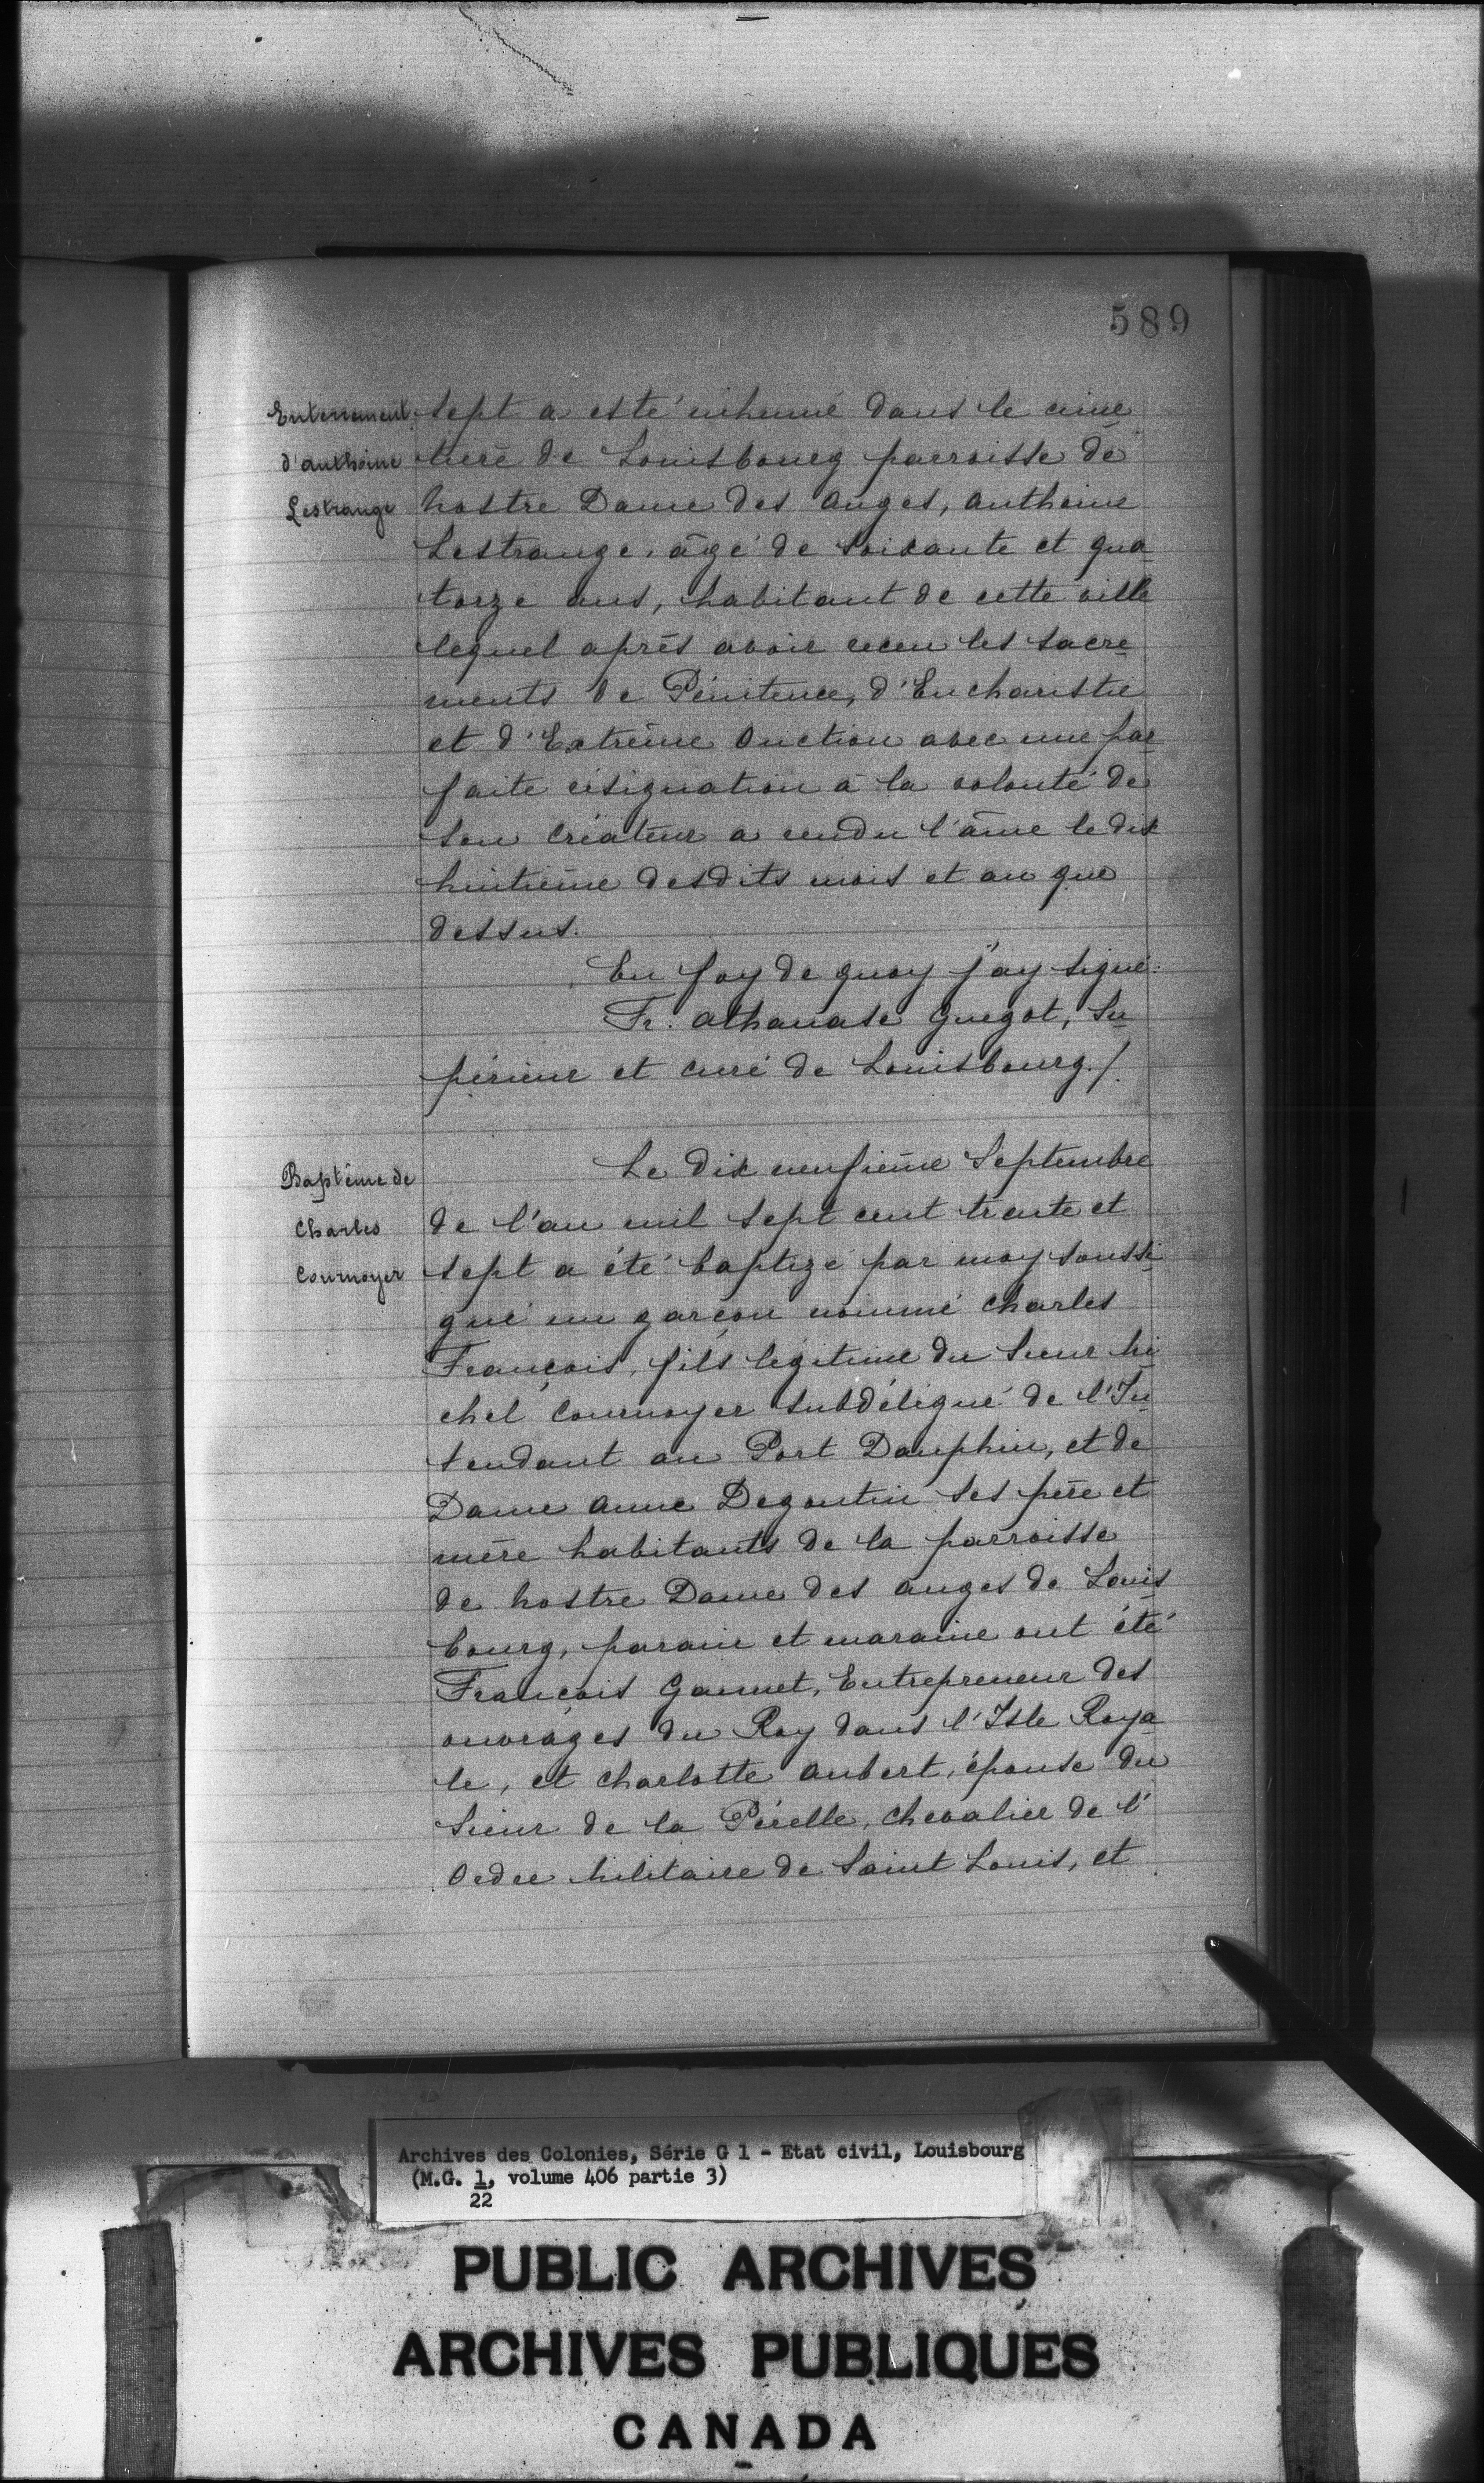 589
Enterrement
d'anthoine
Lestrange
sept a esté inhumé dans le cime
tiere de Louisbourg parroisse de
Nostre Dame des anges, anthoine
Lestrange, âgé de soixante et qua
torze ans, habitant de cette ville
lequel aprés avoir receu les sacre
ments de Pénitence, d'Eucharistie
et d'Extrême Onction avec une par
faite résignation à la volonté de
son Créateur a rendu l'âme le dix
huitième desdits mois et an que
dessus.
En foy de quoy j'ay signé:
Fr. athanase Guegot, Su
périeur et curé de Louisbourg./.
Baptême de
Charles
Cournoyer
Le dix neufième Septembre
de l'an mil sept cent trente et
sept a été baptizé par moy soussi
gné un garçon nommé Charles
François, fils légitime du Sieur Mi
chel Cournoyer subdélégué de l'In
tendant au Port Dauphin, et de
Dame anne Degoutin ses père et
mère habitants de la parroisse
de Nostre Dame des anges de Louis
bourg, parain et maraine ont été
François Gannet, Entrepreneur des
ouvrages du Roy dans l'Isle Roya
le, et Charlotte aubert, épouse du
Sieur de la Pérelle, chevalier de l'
Ordre Militaire de Saint Louis, et
Archives des Colonies, Série G 1 - Etat civil, Louisbourg
(M.G. 1, volume 406 partie 3)
22
PUBLIC ARCHIVES
ARCHIVES PUBLIQUES
CANADA